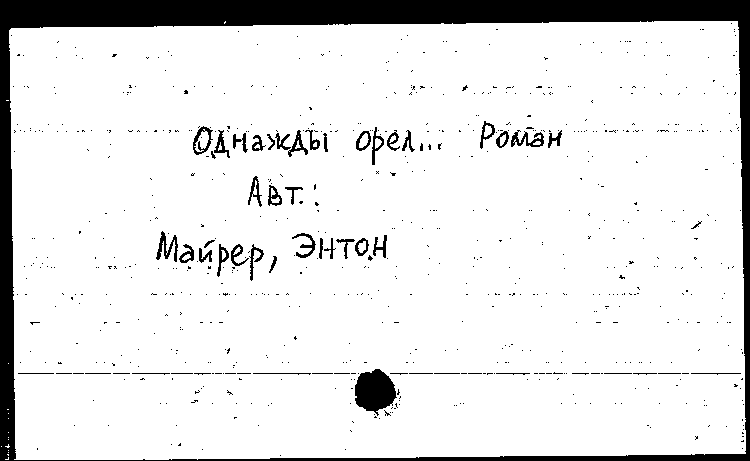 Однажды орел... Роман
Авт.:
Майрер, Энтон